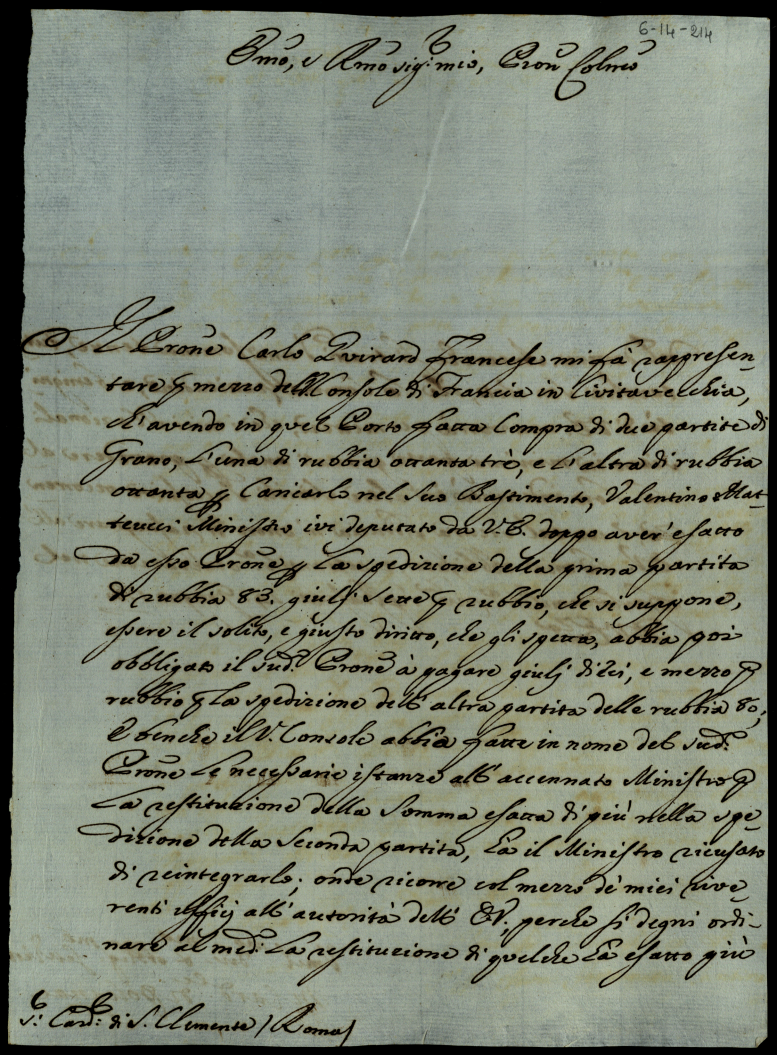 6-14-214
Emo, e Rmo sig.r mio, Pron Colmo
Il Prone Carlo Quirard Francese mi fà rappresen-
tare p mezzo dell Console di Francia in Civitavecchia,
ch'avendo in quel Porto fatta Compra di due partite di
Grano, l'una di rubbia ottanta trè, e l'altra di rubbia
ottanta p Caricarlo nel suo Bastimento, Valentino Mat-
teucci Ministro ivi deputato da V.E. doppo aver'esatto
da esso Prone p la spedizione della prima partita
di rubbia 83. giulj sette p rubbio, che si suppone,
essere il solito, e giusto diritto, che gli spetta, abbia poi
obbligato il sud.o Prone à pagare giulj dieci, e mezzo p
rubbio p la spedizione dell'altra partita delle rubbia 80;
E benche il V. Console abbia fatte in nome del sud.o
Prone le necessarie istanze all'accennato Ministro p
la restituzione della somma esatta di più nella spe-
dizione della seconda partita, hà il Ministro ricusato
di reintegrarlo; onde ricorre col mezzo de miei rive-
renti ufficj all'autorità dell'E.V., perche si degni ordi-
nare al med.o la restituzione di quelche hà esatto più
S.r Card.l di S. Clemente / Roma/